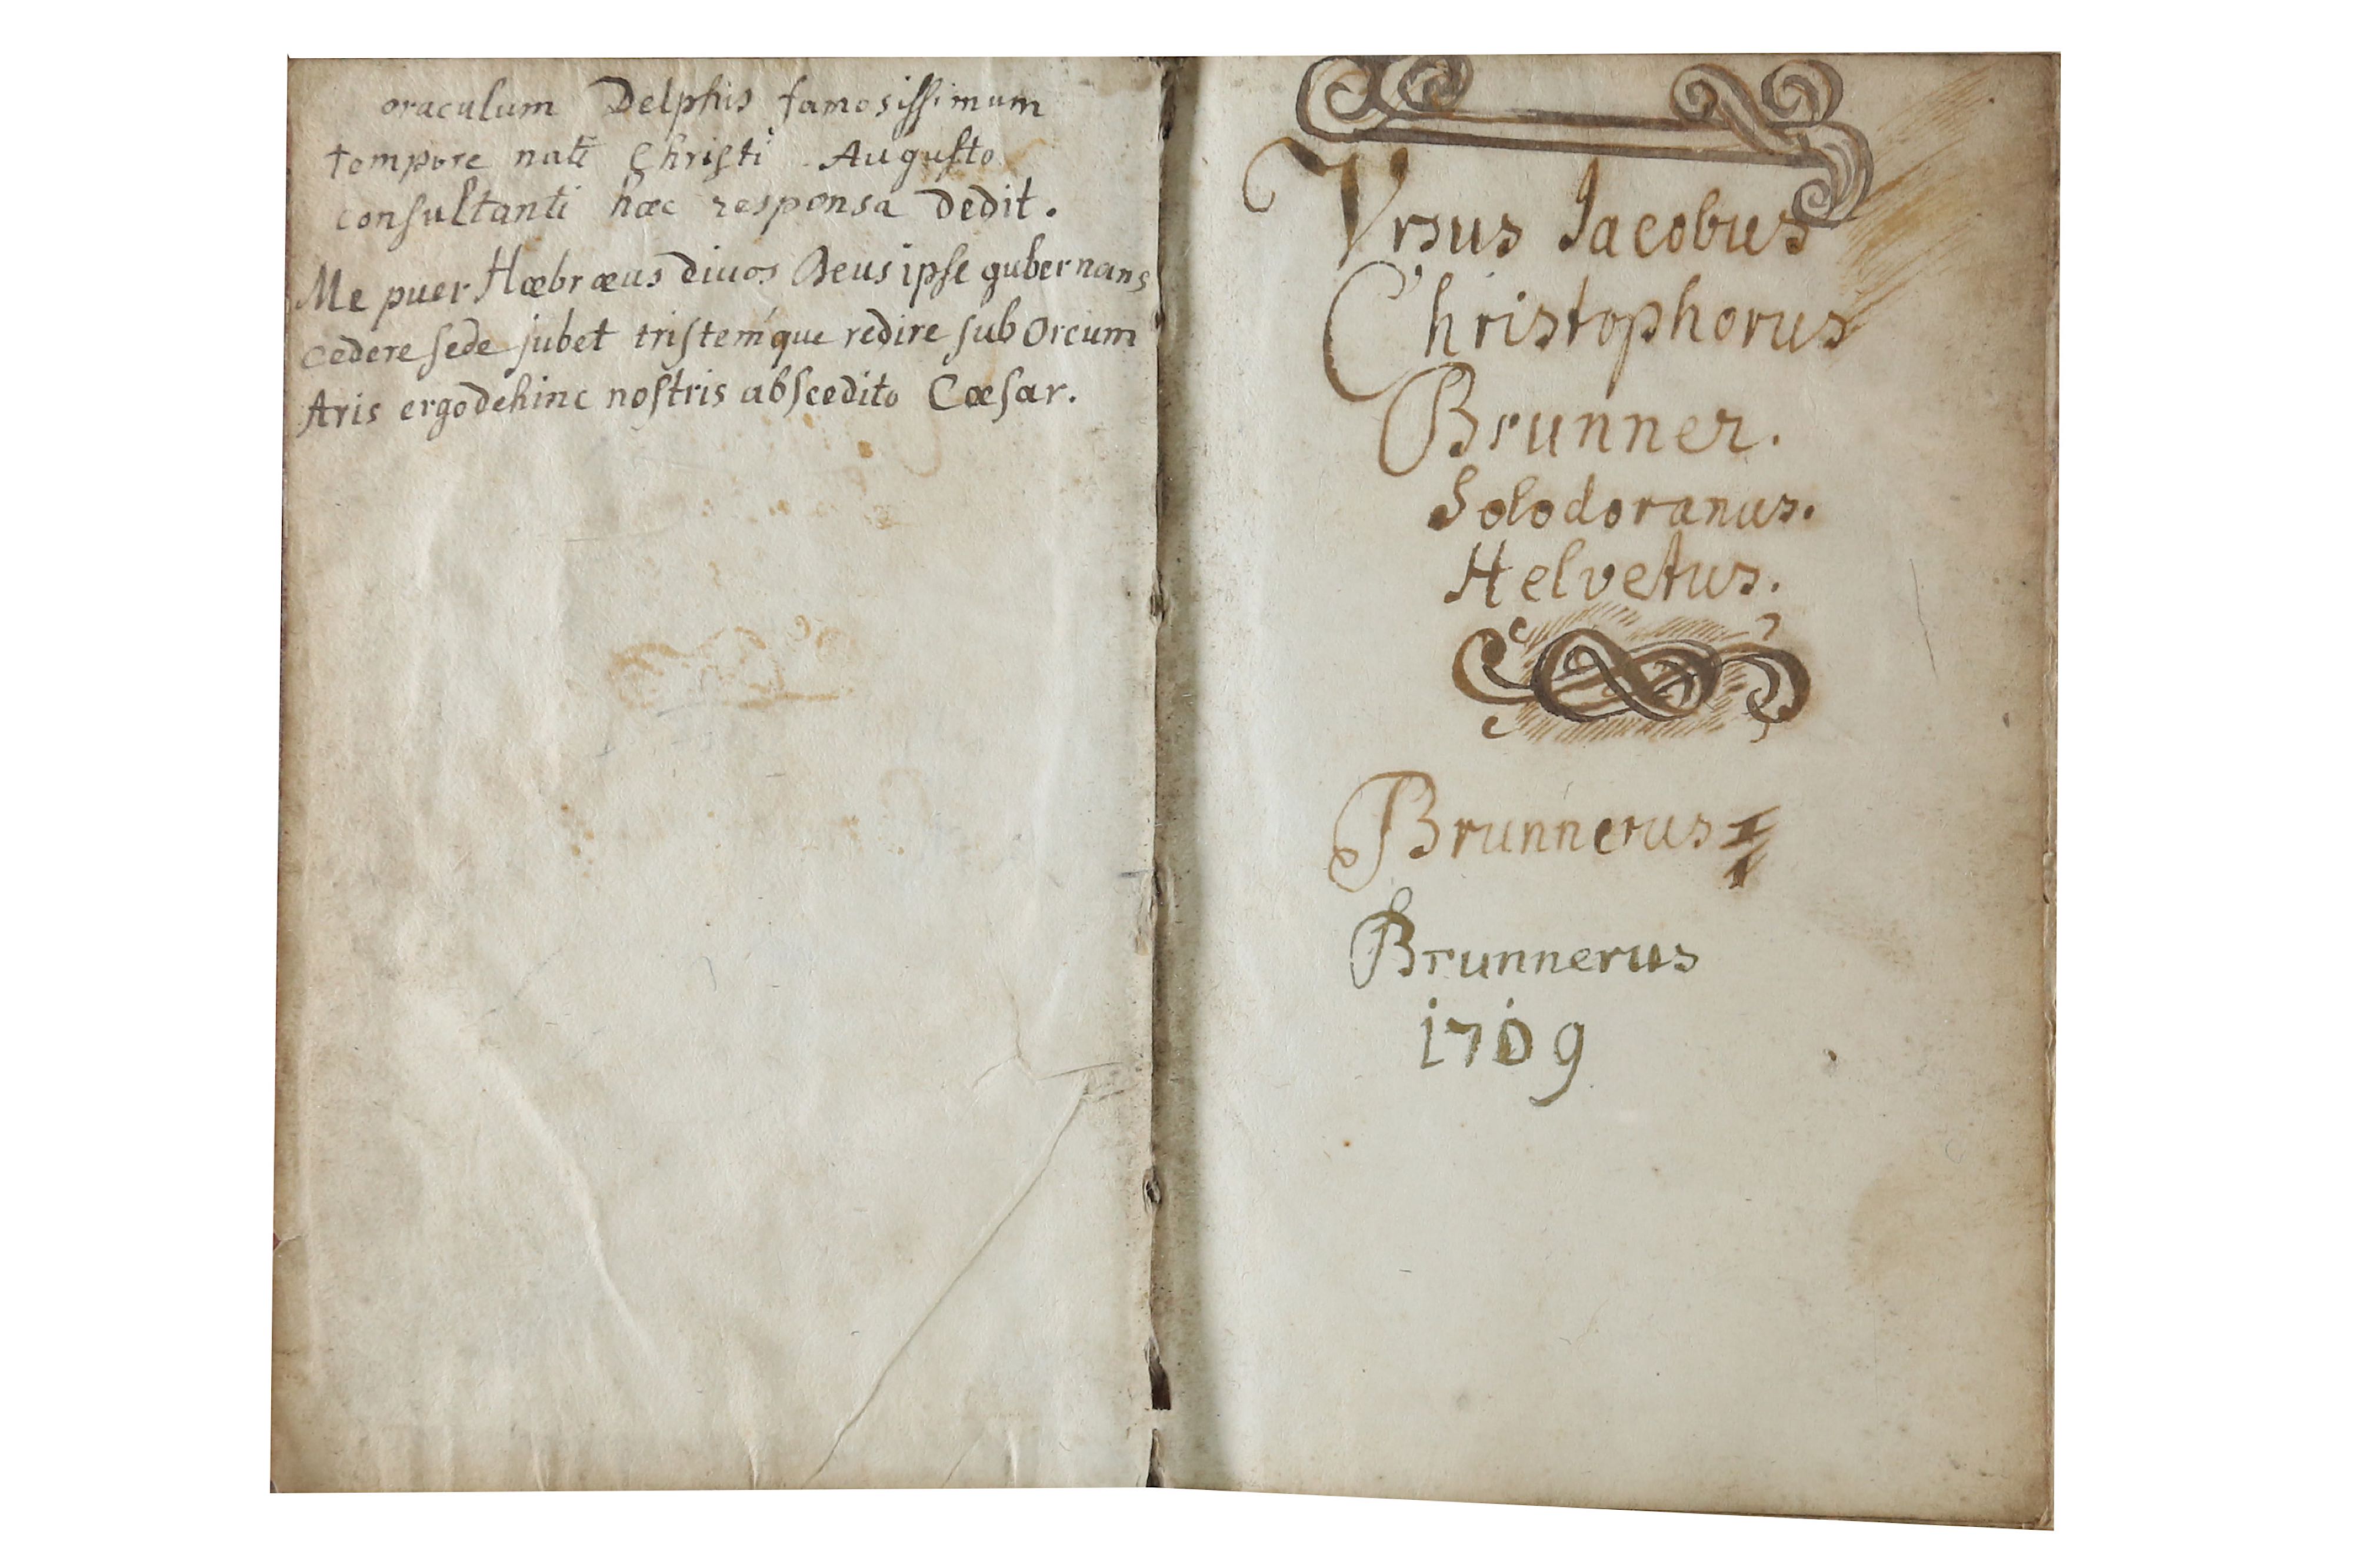 oraculum Delphis famosissimum
tempore nati Christi Augusto
consultanti hæc responsa dedit.
Me puer Hæbræus divos Deus ipse gubernans
cedere sede jubet tristemque redire sub Orcum
Aris ergo dehinc nostris abscedito Cæsar.
Vrsus Jacobus
Christophorus
Brunner.
Solodoranus.
Helvetus.
Brunnerus
Brunnerus
1709